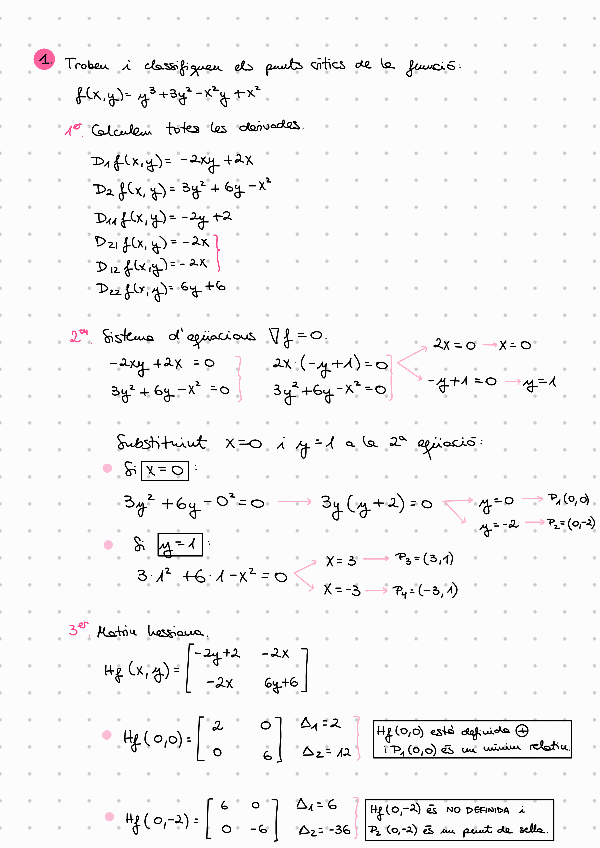 1. Trobeu i classifiqueu els punts crítics de la funció:
f(x,y)= y³+3y²-x²y+x²
1er. Calculem totes les derivades.
D₁f(x,y)= -2xy+2x
D₂f(x,y)= 3y²+6y-x²
D₁₁f(x,y)= -2y+2
D₂₁f(x,y)= -2x
D₁₂f(x,y)= -2x
D₂₂f(x,y)= 6y+6
2on. Sistema d'equacions ∇f=0.
-2xy+2x=0 2x·(-y+1)=0 2x=0 → x=0
3y²+6y-x²=0 3y²+6y-x²=0 -y+1=0 → y=1
Substituint x=0 i y=1 a la 2ª equació:
Si x=0:
3y²+6y-0²=0 → 3y(y+2)=0 y=0 → P₁(0,0)
y=-2 → P₂=(0,-2)
Si y=1:
3·1²+6·1-x²=0 x=3 → P₃=(3,1)
x=-3 → P₄=(-3,1)
3er Matriu hessiana.
Hf(x,y)= [-2y+2 -2x
-2x 6y+6]
Hf(0,0)= [2 0 Δ₁=2 Hf(0,0) està definida ⊕
0 6] Δ₂=12 i P₁(0,0) és un mínim relatiu
Hf(0,-2)= [6 0 Δ₁=6 Hf(0,-2) és NO DEFINIDA i
0 -6] Δ₂=-36 P₂(0,-2) és un punt de sella.